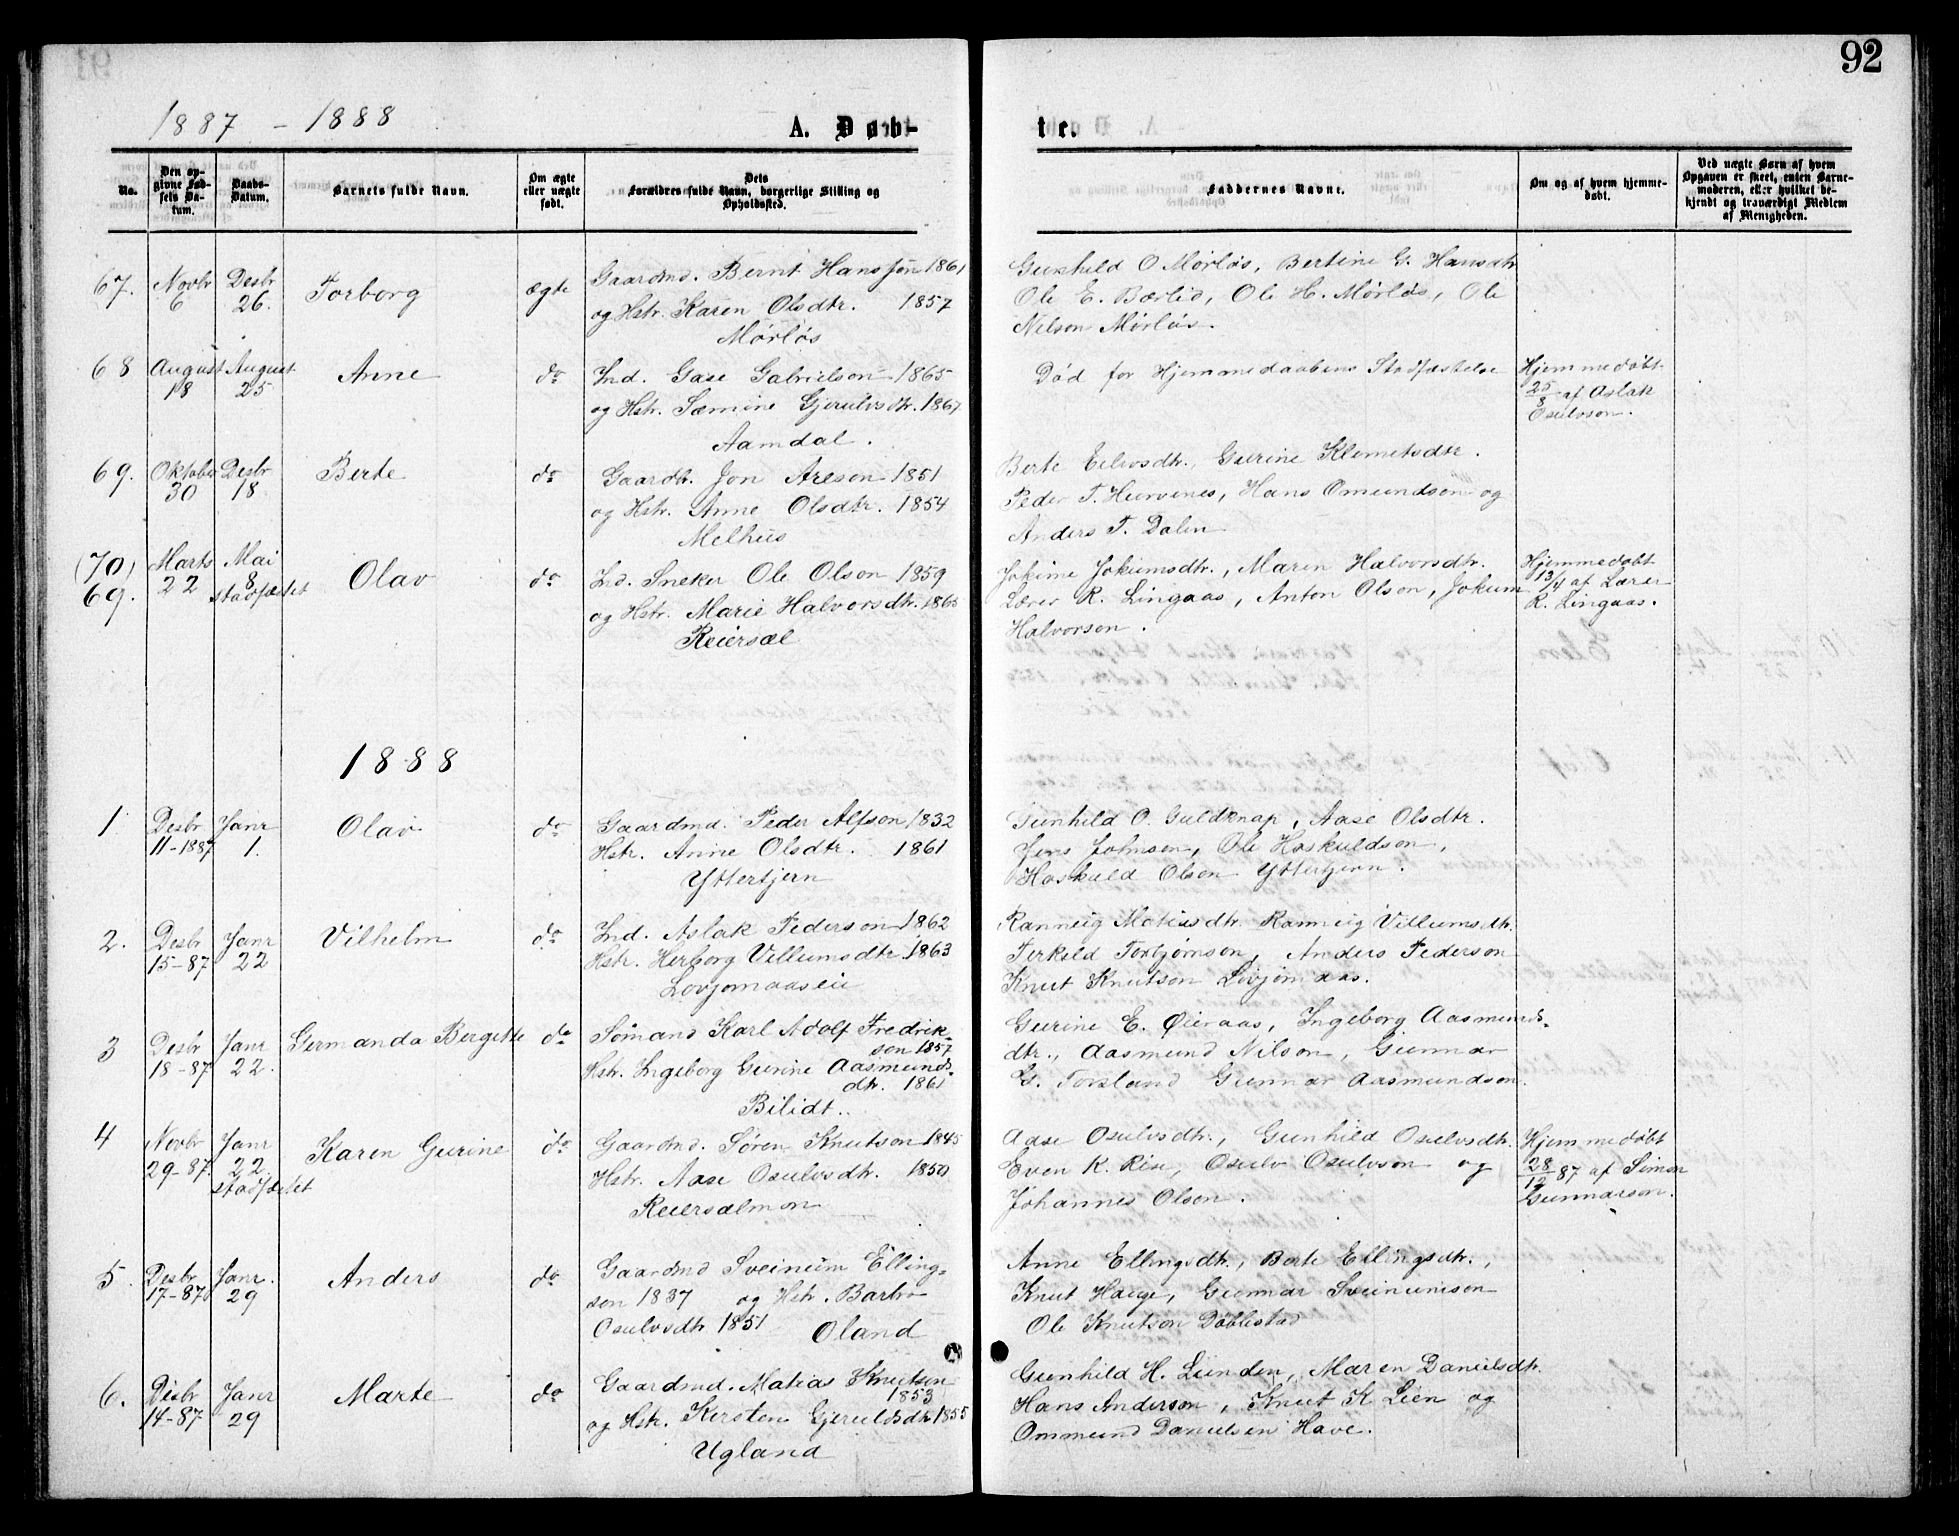 92
1887 - 1888
A. Døb-
te.
No.
Den op-
givne Fød-
sels Da-
tum.
Daabs-
Datum.
Barnets fulde Navn.
Om ægte
eller uægte
født.
Dets
Forældres fulde Navn, borgerlige Stilling og
Opholdssted.
Faddernes Navne.
Om og af hvem hjemme-
døbt.
Ved uægte Børn af hvem
Opgaven er skeet, enten Barne-
moderen, eller hvilket be-
kjendt og troværdigt Medlem
af Menigheden.
67. Novbr 6 Desbr 26. Torborg ægte
Gaardmd. Bernt Hansson 1861
og Hstr. Karen Olsdtr. 1857
Mørløs
Gunhild O Mørløs, Bertine G. Hansdtr
Ole E. Bærlid, Ole H. Mørløs, Ole
Nilson Mørløs.
68 August 18 August 25 Anne do
Ind. Gase Gabrielson 1865
og Hstr. Sæmine Gjerulvsdtr. 1867
Aamdal.
Død for Hjemmedaabens Stadfæstelse
Hjemmedøbt
25/8 af Aslak
Osulvson.
69. Oktober 30 Desbr 18 Berte do
Gaardb. Jon Areson 1851
og Hstr. Anne Olsdtr. 1854
Melhus
Berte Eilivsdtr., Gurine Klemetsdtr.
Peder T. Hurvenes, Hans Omundson og
Anders T. Dalen
(70) 69. Marts 22 Mai 8 stadfæstet Olav do
Ind. Sneker Ole Olson 1859
og Hstr. Marie Halvorsdtr. 1865
Reiersæl
Jokime Jokumsdtr., Maren Halvorsdtr.
Lærer R. Lingaas, Anton Olson, Jokum
Halvorson.
Hjemmedøbt
13/4 af Lærer
R. Lingaas.
1888
1 Desbr 11-1887 Janr 1. Olav do
Gaardmd. Peder Alfson 1832
Hstr. Anne Olsdtr. 1861
Yttertjern
Gunhild O. Guldknap, Aase Olsdtr.
Jens Johnsen, Ole Hoskuldson,
Hoskuld Olson Yttertjern.
2. Desbr 15-87 Janr 22 Vilhelm do
Ind. Aslak Pederson 1862
Hstr. Herborg Villumsdtr. 1863
Lovjomaasen
Ranneig Matiisdtr. Ranneig Villumsdtr.
Terkild Torbjørnson, Anders Pederson
Knut Knutson Lovjomaas.
3 Desbr 18-87 Janr 22. Germanda Bergitte do
Sømand Karl Adolf Fredrik-
son 1857
Hstr. Ingeborg Gurine Aasmunds-
dtr. 1861
Bilidt..
Gurine E. Øieraas, Ingeborg Aasmunds-
dtr., Aasmund Nilson, Gunnar
G. Torsland Gunnar Aasmundson.
4 Novbr 29-87. Janr 22. stadfæstet Karen Gurine do
Gaardmd. Søren Knutson 1845
Hstr. Aase Osulvsdtr. 1850
Reiersælmon
Aase Osulvsdtr., Gunhild Osulvsdtr.
Even K. Rise, Osulv Osulvson og
Johannes Olson.
Hjemmedøbt
28/12 87 af Simon
Gunnarson.
5. Desbr 17-87 Janr. 29 Anders do
Gaardmd Sveinum Elling-
son 1837 og Hstr. Barbro
Osulvsdtr 1851 Oland
Anne Ellingsdtr., Berte Ellingsdtr.,
Knut Hauge, Gunnar Sveinumson
Ole Knutson Døblestad
6. Desbr 14-87 Janr 29 Marte do
Gaardmd. Matias Knutson
1853
og Hstr. Kirsten Gjerulvsdtr 1855
Ugland
Gunhild H. Lunden, Maren Danielsdtr.
Hans Anderson, Knut K Lien og
Ommund Danielsen Have.